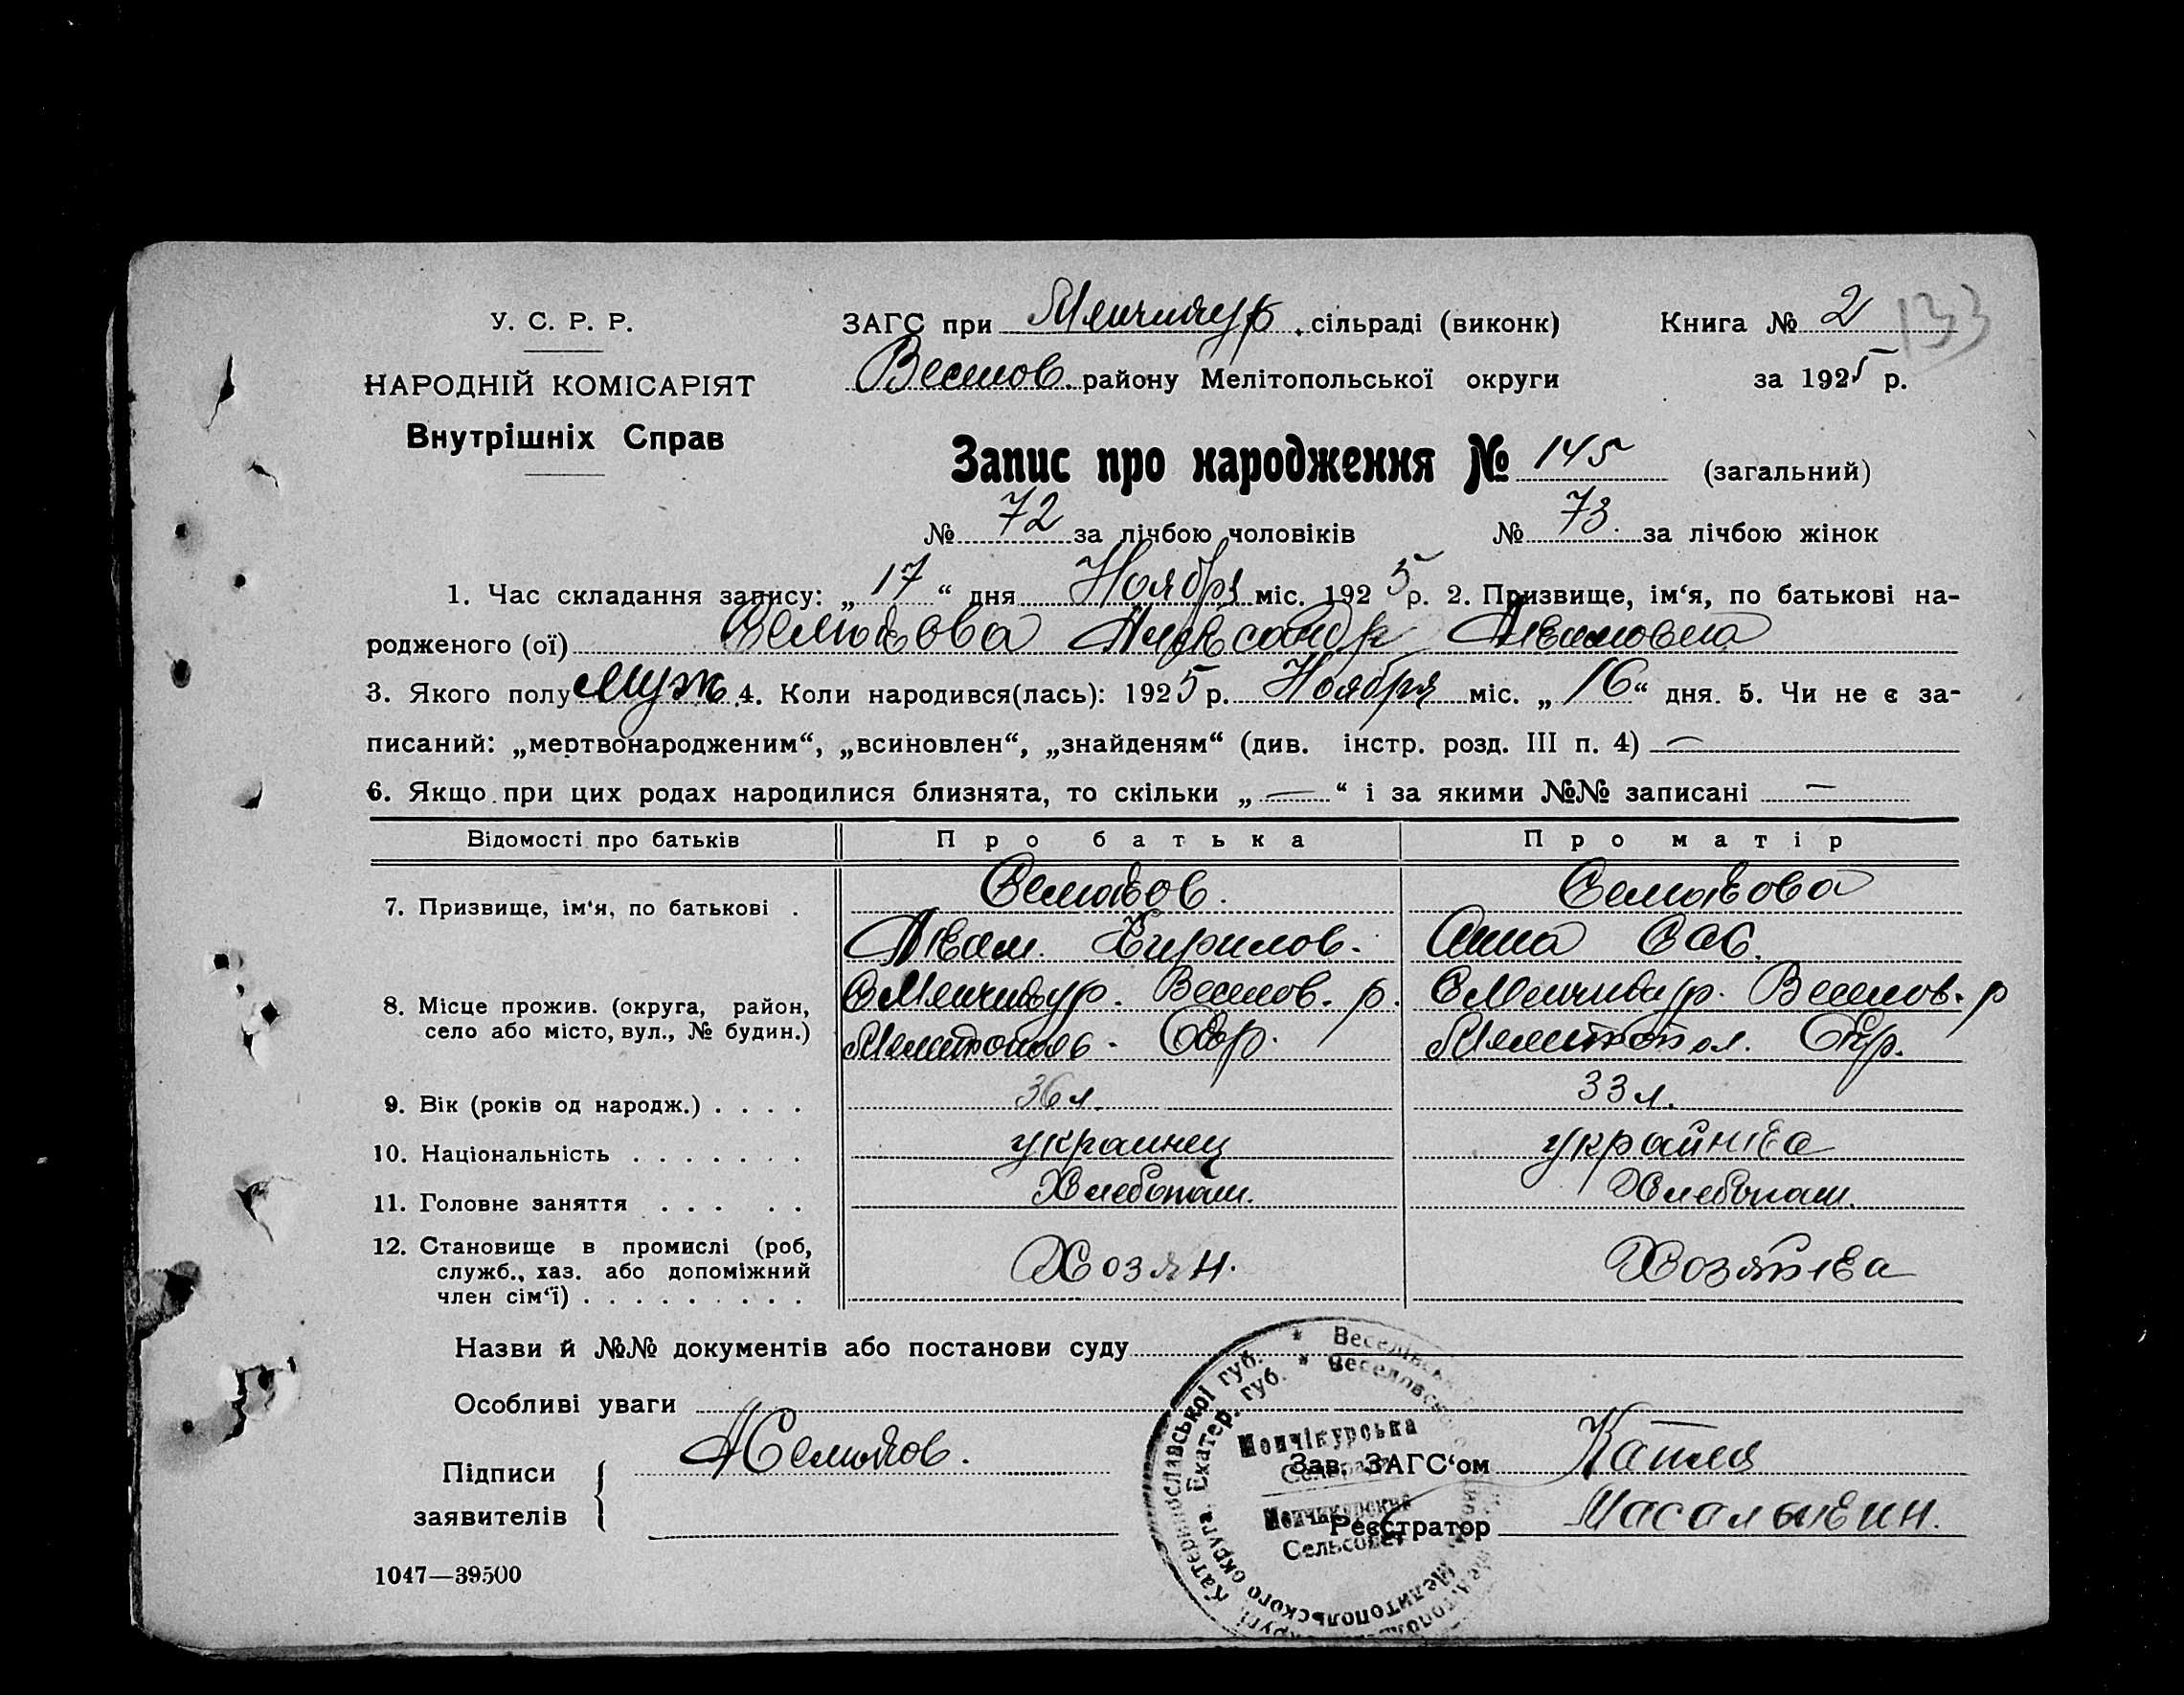 У. С. Р. Р.
НАРОДНІЙ КОМІСАРІЯТ
Внутрішніх Справ
ЗАГС при Менчикур. сільраді (виконк)
Книга № 2 133
Веселов. району Мелітопольської округи
за 1925 р.
Запис про народження № 145 (загальний)
№ 72 за лічбою чоловіків № 73. за лічбою жінок
1. Час складання запису: „17“ дня Ноября міс. 1925 р. 2. Призвище, ім‘я, по батькові на-
родженого (ої) Александр
3. Якого полу муж. 4. Коли народився(лась): 1925 р. Ноября міс. „16“ дня. 5. Чи не є за-
писаний: „мертвонародженим“, „всиновлен“, „знайденям“ (див. інстр. розд. III п. 4) —
6. Якщо при цих родах народилися близнята, то скільки „—“ і за якими №№ записані —
Відомості про батьків Про батька Про матір
7. Призвище, ім‘я, по батькові .
Кирилов. Анна Сав.
8. Місце прожив. (округа, район,
село або місто, вул., № будин.)
С Менчикур. Веселов. р. С Менчикур. Веселов. р
Мелитополь. Окр. Мелитопол. Окр.
9. Вік (років од народж.) . . . . 36 л. 33 л.
10. Національність . . . . . . . украинец украйнка
11. Головне заняття . . . . . Хлебопаш. Хлебопаш.
12. Становище в промислі (роб,
служб., хаз. або допоміжний
член сім‘ї) . . . . . . . . .
Хозяин. Хозяйка
Назви й №№ документів або постанови суду
Особливі уваги
Підписи
заявителів
Зав. ЗАГС‘ом
Реєстратор Масалыкин.
Менчікурська
Сельрада
Менчикурский
Сельсовет
Катеринославської губ.
Екатер. губ.
Мелитопольского округа
1047—39500